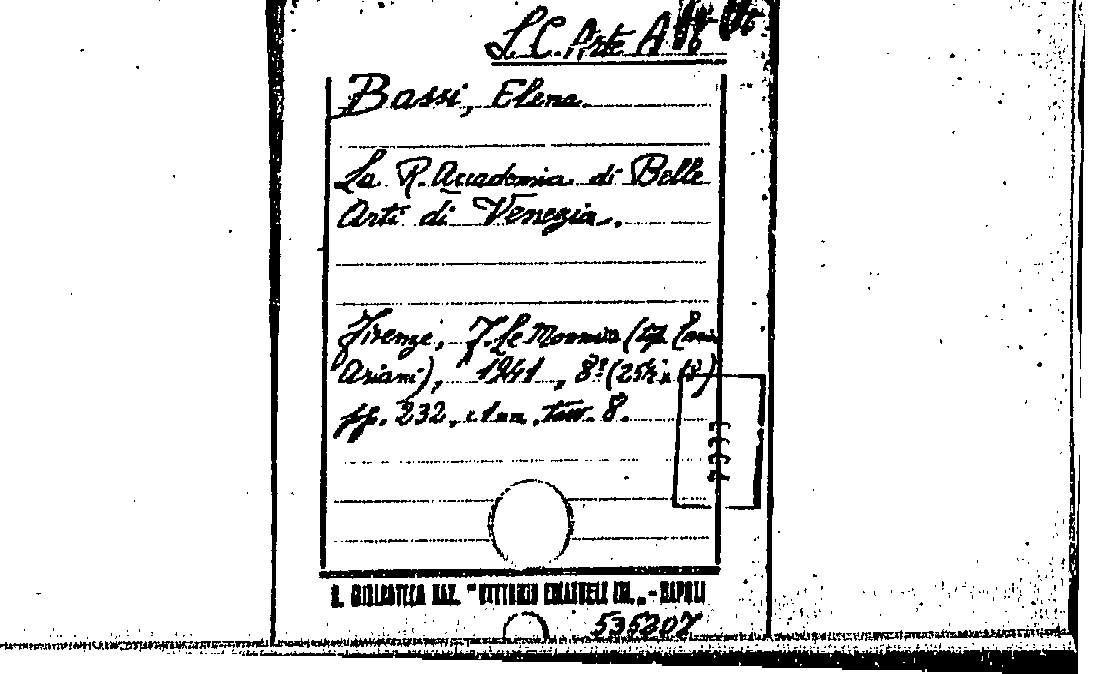 S.C. Arte A
Bassi, Elena
La R. Accademia di Belle
Arti di Venezia.
Firenze, F. Le Monnier (tip.
Ariani), 1941, 8°
pp. 232, tav. 8.
R. BIBLIOTECA NAZ. "VITTORIO EMANUELE III„ - NAPOLI
535207